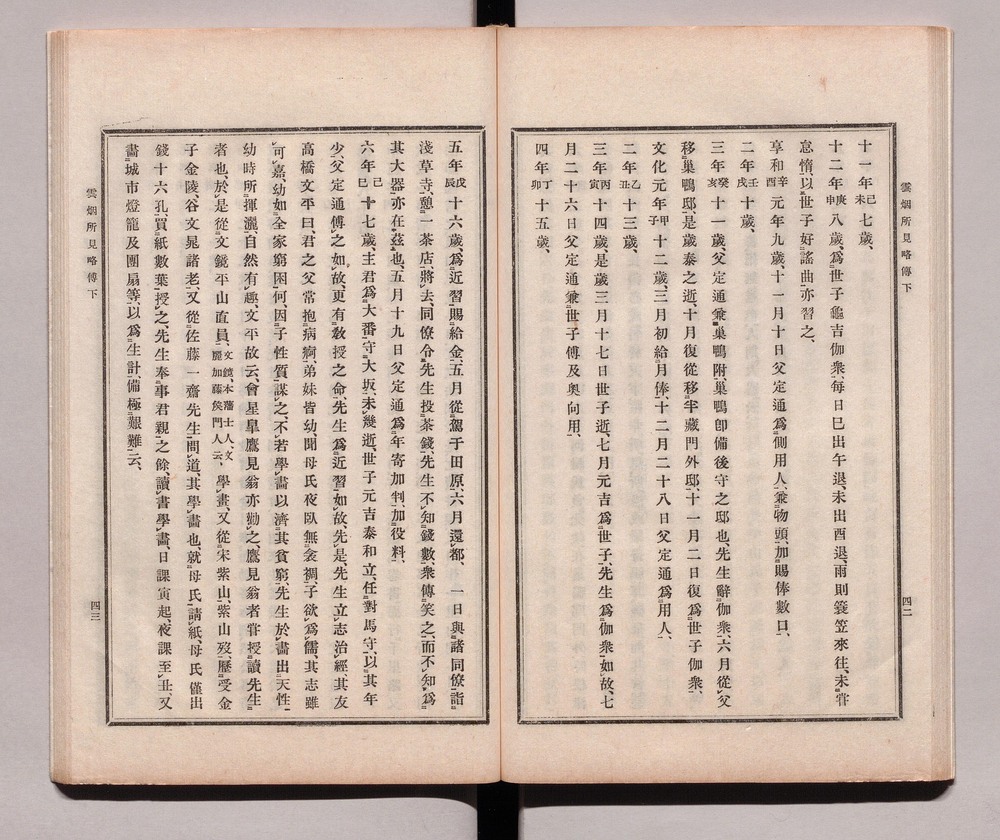 雲烟所見略傳下
十一年己未七歲、
十二年庚申八歲、爲世子龜吉伽衆、每日巳出午退、未出酉退、雨則簑笠來往、未嘗
怠惰、以世子好謠曲亦習之、
享和辛酉元年九歲、十一月十日父定通爲側用人、兼物頭、加賜俸數口、
二年壬戌十歲、
三年癸亥十一歲、父定通兼巢鴨附巢鴨卽備後守之邸也先生辭伽衆、六月從父
移巢鴨邸、是歲泰之逝、十月復從移半藏門外邸、十一月二日復爲世子伽衆、
文化元年甲子十二歲、三月初給月俸、十二月二十八日父定通爲用人、
二年乙丑十三歲、
三年丙寅十四歲是歲三月十七日世子逝、七月元吉爲世子、先生爲伽衆如故、七
月二十六日父定通兼世子傅及奧向用、
四年丁卯十五歲、
四二
五年戊辰十六歲、爲近習、賜給金、五月從駕于田原、六月還都、一日與諸同僚詣
淺草寺、憩一茶店、將去同僚令先生投茶錢、先生不知錢數、衆傳笑之、而不知爲
其大器亦在茲也五月十九日父定通爲年寄加判、加役料、
六年己巳十七歲、主君爲大番守大坂、未幾逝、世子元吉泰和立、任對馬守、以其年
少、父定通傅之如故、更有敎授之命、先生爲近習如故、先是先生立志治經、其友
高橋文平曰、君之父常抱病痾、弟妹皆幼、聞母氏夜臥無衾裯、子欲爲儒、其志雖
可嘉、幼如全家窮困何、因子性質謀之、不若學畫以濟其貧窮、先生於畫出天性
幼時所揮灑、自然有趣、文平故云、會星皐鷹見翁亦勸之鷹見翁者嘗授讀先生
者也、於是從文鏡平山直員、文鏡、本藩士人、文麗加藤侯門人云、學畫、又從宋紫山、紫山歿、歷受金
子金陵、谷文晁諸老、又從佐藤一齋先生問道、其學畫也、就母氏請紙、母氏僅出
錢十六孔、買紙數葉授之、先生奉事君親之餘、讀書學畫、日課寅起、夜課至丑、又
畫城市燈籠及團扇等、以爲生計、備極艱難云、
雲烟所見略傳下
四三